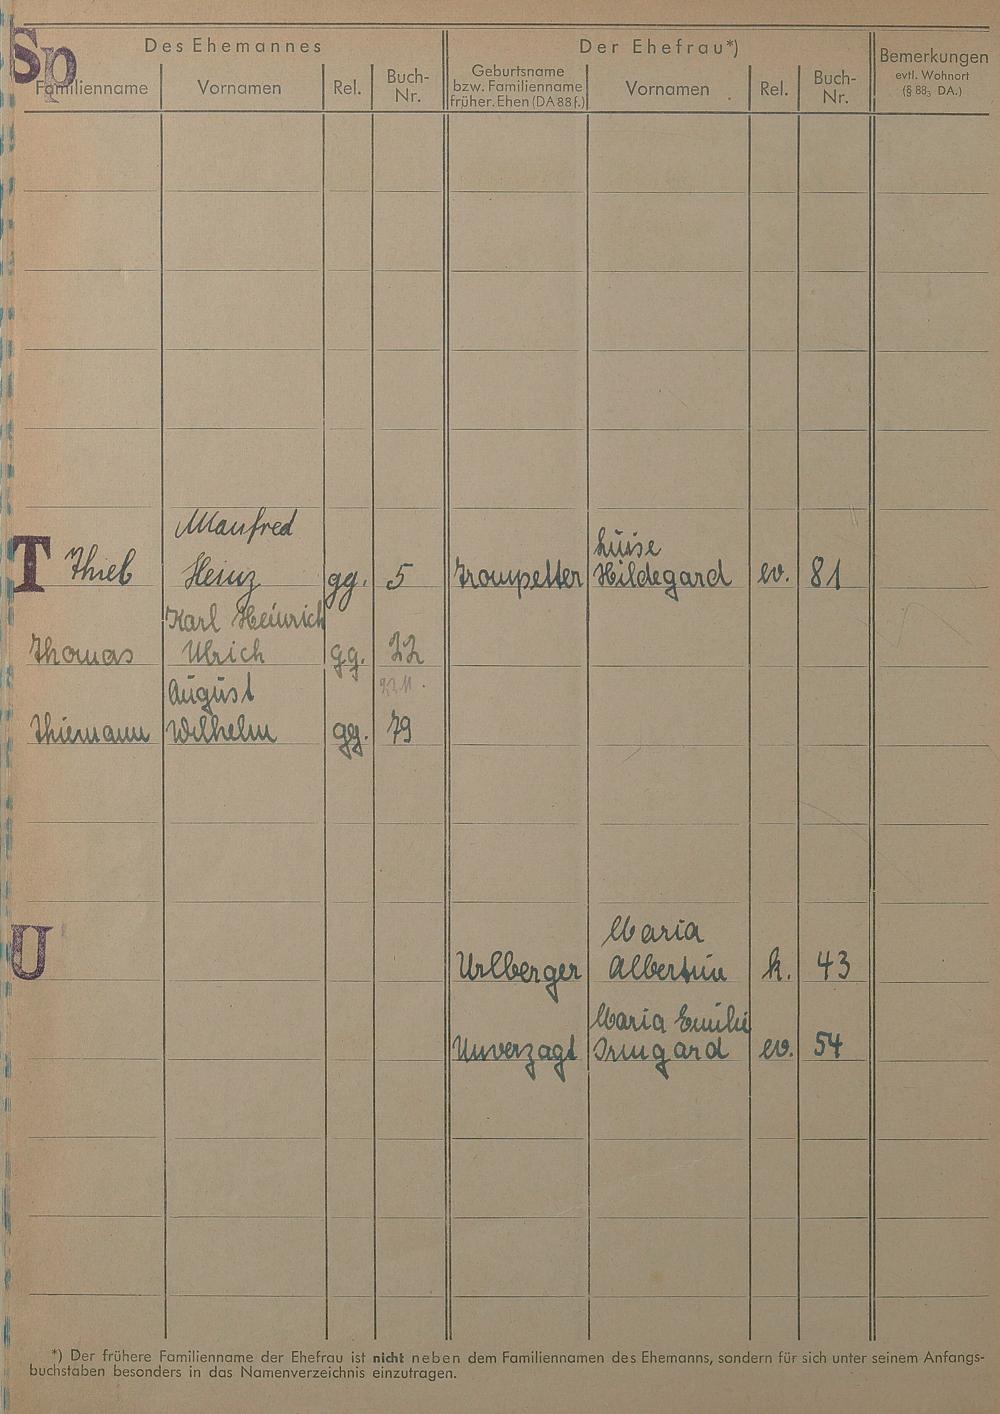 Sp
Des Ehemannes
Der Ehefrau*)
Bemerkungen
evtl. Wohnort
(§ 88₃ DA.)
Familienname
Vornamen
Rel.
Buch-
Nr.
Geburtsname
bzw. Familienname
früher. Ehen (DA 88 f.)
Vornamen
Rel.
Buch-
Nr.
T
Manfred
Luise
Thiel Heinz gg. 5 Trompetter Hildegard ev. 81
Karl Heinrich
Thomas Ulrich gg. 22
August
Thiemann Wilhelm gg. 79
U
Maria
Urlberger Albertine k. 43
Maria Emilie
Unverzagt Irmgard ev. 54
*) Der frühere Familienname der Ehefrau ist nicht neben dem Familiennamen des Ehemanns, sondern für sich unter seinem Anfangs-
buchstaben besonders in das Namenverzeichnis einzutragen.